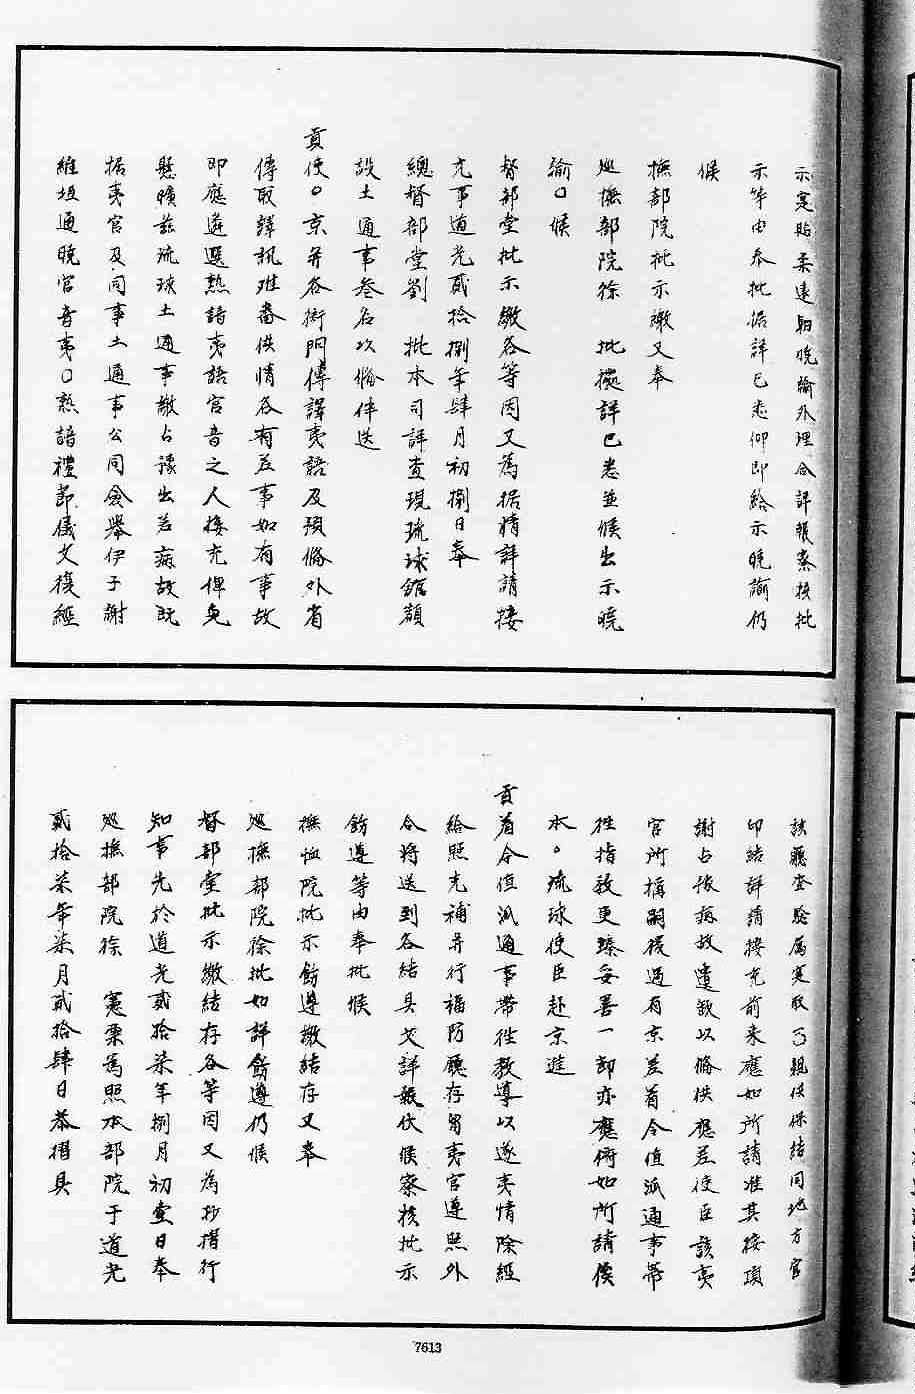 示寔貼柔遠馹曉諭外理合詳報察核批
示等由奉批據詳已悉仰即給示曉諭仍
候
撫部院批示繳又奉
巡撫部院徐　批據詳已悉並候出示曉
諭○候
督部堂批示繳各等因又為据情詳請接
充事道光貳拾捌年肆月初捌日奉
總督部堂劉　批本司詳查現琉球館額
設土通事叁名以俻伴送
貢使○京并各衙門傳譯夷語及預俻外省
傳取譯訊难番供情各有差事如有事故
即應遴選熟諳夷語官音之人接充俾免
懸曠茲琉球土通事謝占豫出差病故既
据夷官及同事土通事公同僉舉伊子謝
維垣通曉官音夷○熟諳禮節儀文復經
該廳查驗属寔取了親供保結同地方官
印結詳請接充前來應如所請准其接頂
謝占豫病故遺缺以俻供應差使至該夷
官所稱嗣後遇有京差着令值派通事帶
徃指教更臻妥善一節亦應俯如所請俟
本○琉球使臣赴京進
貢着令值派通事帶徃教導以遂夷情除經
給照充補并行福防廳存留夷官遵照外
合將送到各結具文詳報伏候察核批示
飭遵等由奉批候
撫恤院批示飭遵繳結存又奉
巡撫部院徐批如詳飭遵仍候
督部堂批示繳結存各等因又為抄摺行
知事先於道光貳拾柒年捌月初壹日奉
巡撫部院徐　憲票為照本部院于道光
貳拾柒年柒月貳拾肆日恭摺具
7613